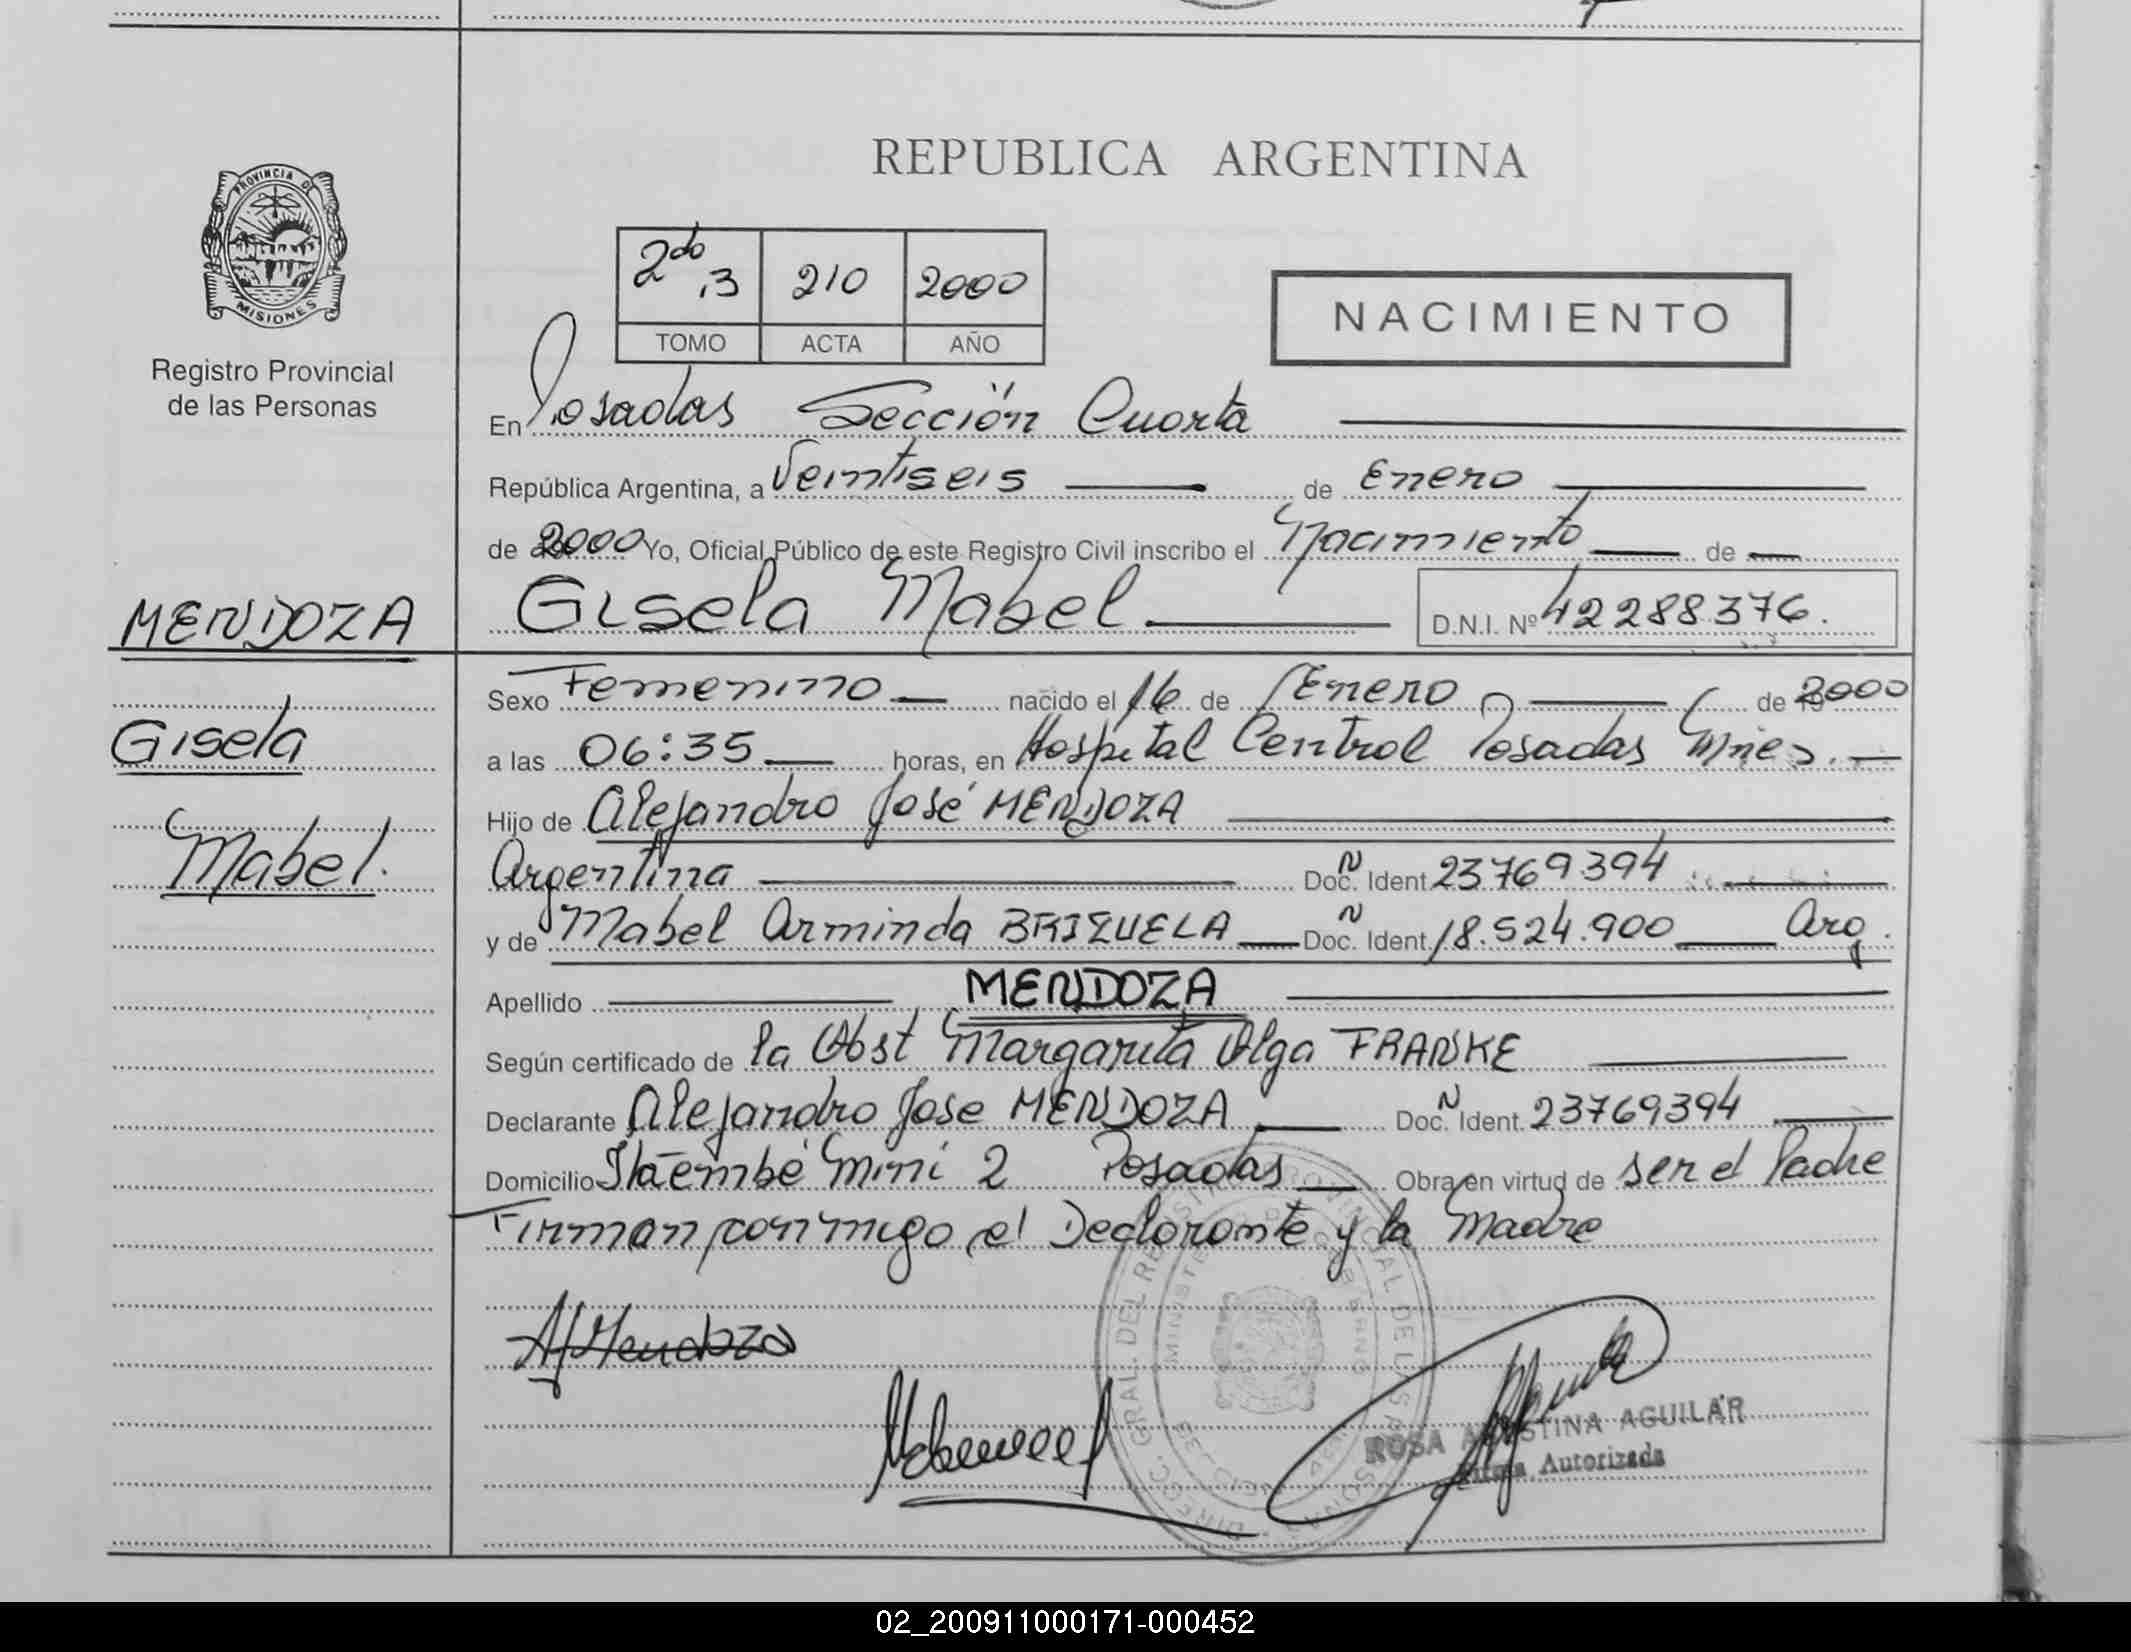 REPUBLICA ARGENTINA
PROVINCIA DE
MISIONES
Registro Provincial
de las Personas
2do 3 210 2000
TOMO ACTA AÑO
NACIMIENTO
En Posadas Sección Cuarta
República Argentina, a Veintiseis de Enero
de 2000 Yo, Oficial Público de este Registro Civil inscribo el Nacimiento de
MENDOZA
Gisela Mabel D.N.I. Nº 42288376.
Sexo Femenino nacido el 16 de Enero de 2000
Gisela
a las 06:35 horas, en Hospital Central Posadas Mnes.
Hijo de Alejandro José MENDOZA
Mabel.
Argentina Doc. N Ident 23769394
y de Mabel Arminda BRIZUELA Doc. N Ident 18.524.900 Arg.
Apellido MENDOZA
Según certificado de la Obst Margarita Olga FRANKE
Declarante Alejandro Jose MENDOZA Doc. N Ident. 23769394
Domicilio Itaembé Mini 2 Posadas Obra en virtud de ser el Padre
Firman conmigo el Declarante y la Madre
AJMendoza
DIRECC. GRAL. DEL REGISTRO PROVINCIAL DE LAS PERSONAS
MINISTERIO DE GOBIERNO
ROSA AGUSTINA AGUILAR
Firma Autorizada
02_200911000171-000452